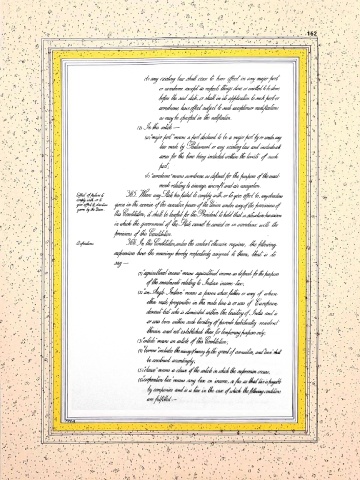 162
(b) any existing law shall cease to have effect in any major port
or aerodrome except as respects things done or omitted to be done
before the said date, or shall in its application to such port or
aerodrome have effect subject to such exceptions or modifications
as may be specified in the notification.
(2) In this article —
(a) "major port" means a port declared to be a major port by or under any
law made by Parliament or any existing law and includes all
areas for the time being included within the limits of such
port;
(b) "aerodrome" means aerodrome as defined for the purposes of the enact-
ments relating to airways, aircraft and air navigation.
Effect of failure to
comply with, or to
give effect to, directions
given by the Union.
365. Where any State has failed to comply with, or to give effect to, any directions
given in the exercise of the executive power of the Union under any of the provisions of
this Constitution, it shall be lawful for the President to hold that a situation has arisen
in which the government of the State cannot be carried on in accordance with the
provisions of this Constitution.
Definitions.
366. In this Constitution, unless the context otherwise requires, the following
expressions have the meanings hereby respectively assigned to them, that is to
say —
(1) "agricultural income" means agricultural income as defined for the purposes
of the enactments relating to Indian income-tax;
(2) "an Anglo-Indian" means a person whose father or any of whose
other male progenitors in the male line is or was of European
descent but who is domiciled within the territory of India and is
or was born within such territory of parents habitually resident
therein and not established there for temporary purposes only;
(3) "article" means an article of this Constitution;
(4) "borrow" includes the raising of money by the grant of annuities, and "loan" shall
be construed accordingly;
(5) "clause" means a clause of the article in which the expression occurs;
(6) "corporation tax" means any tax on income, so far as that tax is payable
by companies and is a tax in the case of which the following conditions
are fulfilled :—